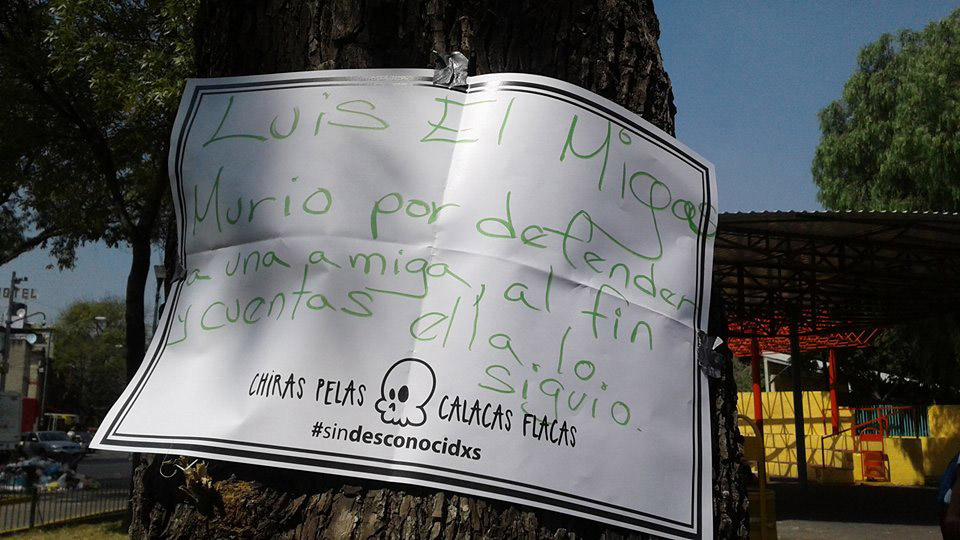 Luis El Migas
Murio por defender
a una amiga, al fin
y cuentas ella lo
siguio.
CHIRAS PELAS CALACAS FLACAS
#sindesconocidxs
HOTEL